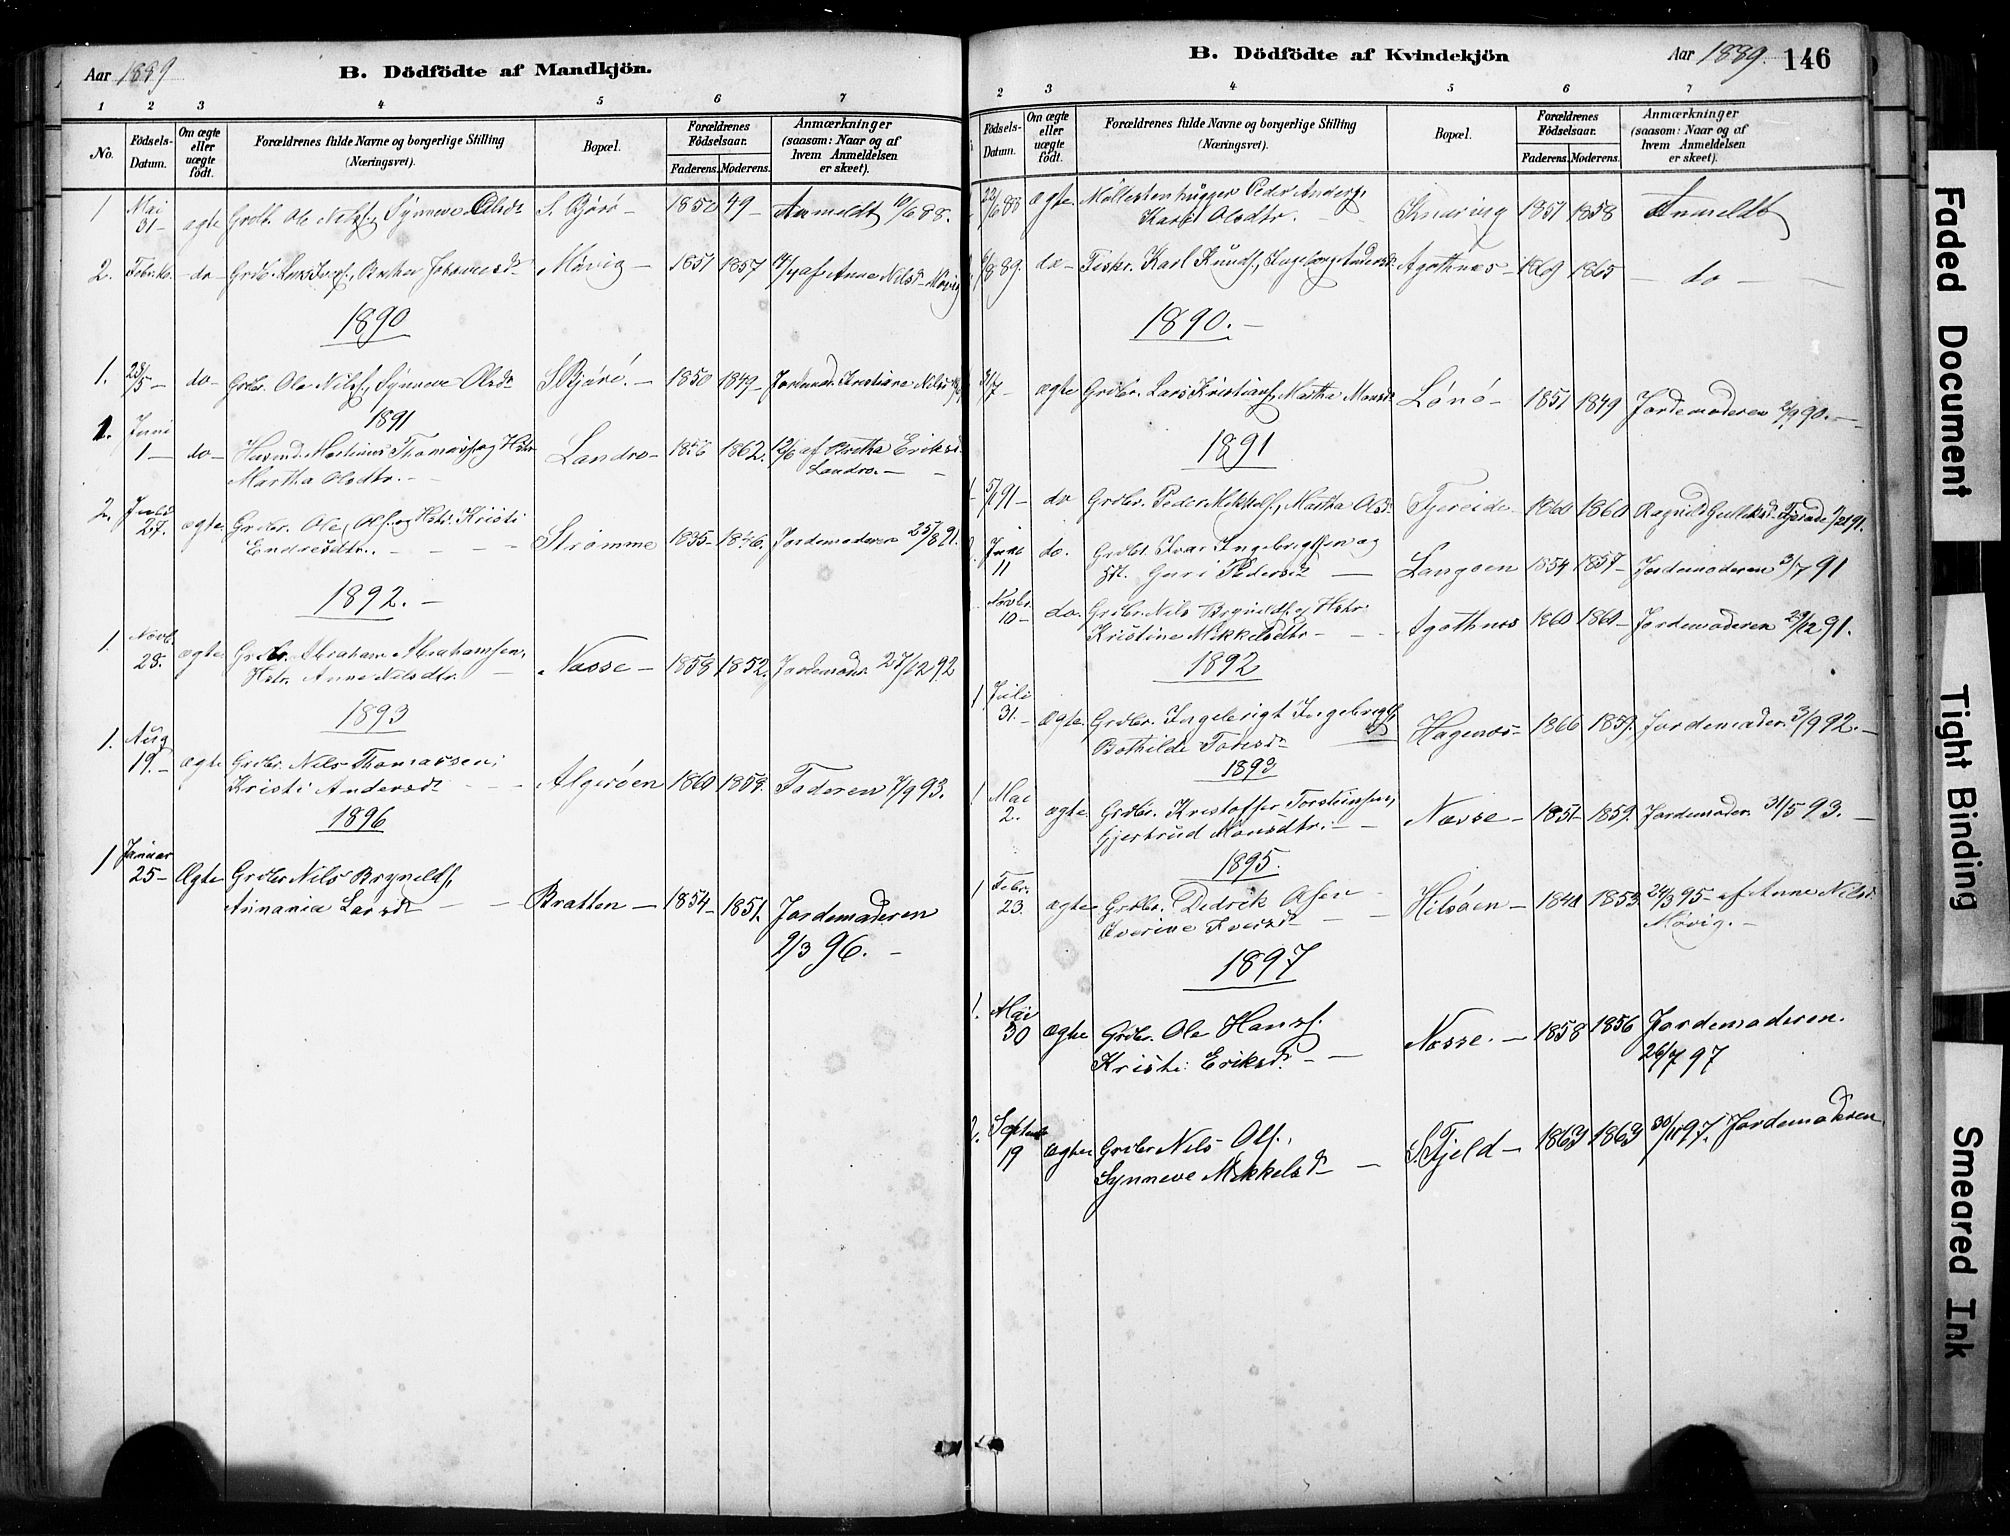 Aar 1889
B. Dödfödte af Mandkjön.
1 2 3 4 5 6 7
No.
Födsels-Datum.
Om ægte eller uægte födt.
Forældrenes fulde Navne og borgerlige Stilling (Næringsvei).
Bopæl.
Forældrenes Födselsaar.
Faderens. Moderens.
Anmærkninger (saasom: Naar og af hvem Anmeldelsen er skeet).
1 Mai 31 - ægte Grdb. Ole Nilsf., Synneve Olsdr S. Bjørø - 1850 49 - Anmeldt 10/6 88.
2. do - Grdb. Johannesdr Møvig - 1851 1857 af Anne Nilsd. Møvig
1890
1. 28/5 - do - Grdbr. Ole Nilsf., Synneve Olsdr S. Bjørø. - 1850 1849 - Jordemod. Kristiane Nilsd.
1891
1. Juni 1 - do - Husmd. Martinus Thomasf. og Hstr.
Martha Olsdtr. - Landro - 1856 1862. 12/6 af Eriksd.
Landro. -
2. 27. ægte Grdbr. Ole Olsf. og Hstr. Kristi
Endresdtr. - - - Strømme 1835 - 1846. Jordemoderen 25/8 91.
1892. -
1. Novb. 28. ægte Grdbr. Abraham Abrahamsen,
Hstr. Anne Nilsdtr. - Næsse - 1858 1852. Jordemodr. 27/12 92
1893
1. Aug 19. - ægte Grdbr. Nils Thomassen,
Kristi Andersdr - - Algerøen 1860 1858. Faderen 7/9 93.
1896
1 Januar 25 - Ægte Grdbr Nils Brynildsf.,
Annania Larsdr - - Bratten - 1854 - 1851. Jordemoderen
9/3 96. -
B. Dödfödte af Kvindekjön
Aar 1889. 146
2 3 4 5 6 7
Födsels-Datum.
Om ægte eller uægte födt.
Forældrenes fulde Navne og borgerlige Stilling (Næringsvei).
Bopæl.
Forældrenes Födselsaar.
Faderens. Moderens.
Anmærkninger (saasom: Naar og af hvem Anmeldelsen er skeet).
22/6 88 ægte Møllestenhugger Peder Andersf.
Kari Olsdtr. - - 1857 1858 Anmeldt
8 89. do - Fiskr. Karl Knudsf., Ingeborg Andersdr. Agothnes - 1869 1865 - do -
1890. -
31/7 - ægte Grdbr. Lars Kristiansf., Martha Monsdr Lønø - 1851 1849 Jordemoderen 2/9 90. -
1891
91 - do Grdbr. Peder Mikkelsf., Martha Olsdr Fjæreide 1860 1860 Fjereide 91.
Juni 11 do. Grdbr. Ivar Ingebrigtsen og
Hst. Guri Pedersdr - Langøen 1854 1857 - Jordemoderen 3/7 91
Novbr. 10 - do. Grdbr. Nils Brynildsf. og Hstr.
Kristine Mikkelsdtr - - Agothnes 1860 1860 - Jordemoderen 29/12 91.
1892
1. Juli 31. - ægte. Grdbr. Ingebrigt Ingebrigtsf.
Bothilde Tonsdr Hagenes - 1866 1859. Jordemoder. 3/9 92. -
1893
1 Mai 2. ægte Grdbr. Kristoffer Torsteinsen,
Gjertrud Monsdtr. - - Næsse - 1851 - 1859. Jordemoder. 31/5 93. -
1895.
1 Febr. 23. ægte Grdbr. Didrik Olsen
Iverine Iversdr - Hilsøen - 1848 1853 24/3 95 - af Anne Nilsd.
Møvig. -
1897
1. Mai 30 ægte Grdbr. Ole Hansf.
Kristi Eriksdr. - - Næsse. - 1858 1856 Jordemoderen.
26/7 97
2. Septemb 19 ægte Grdbr Nils Olsf.,
Synneve Mikkelsdr - S. Fjeld - 1863 1863 30/11 97. Jordemoderen
Faded Document
Tight Binding
Smeared Ink